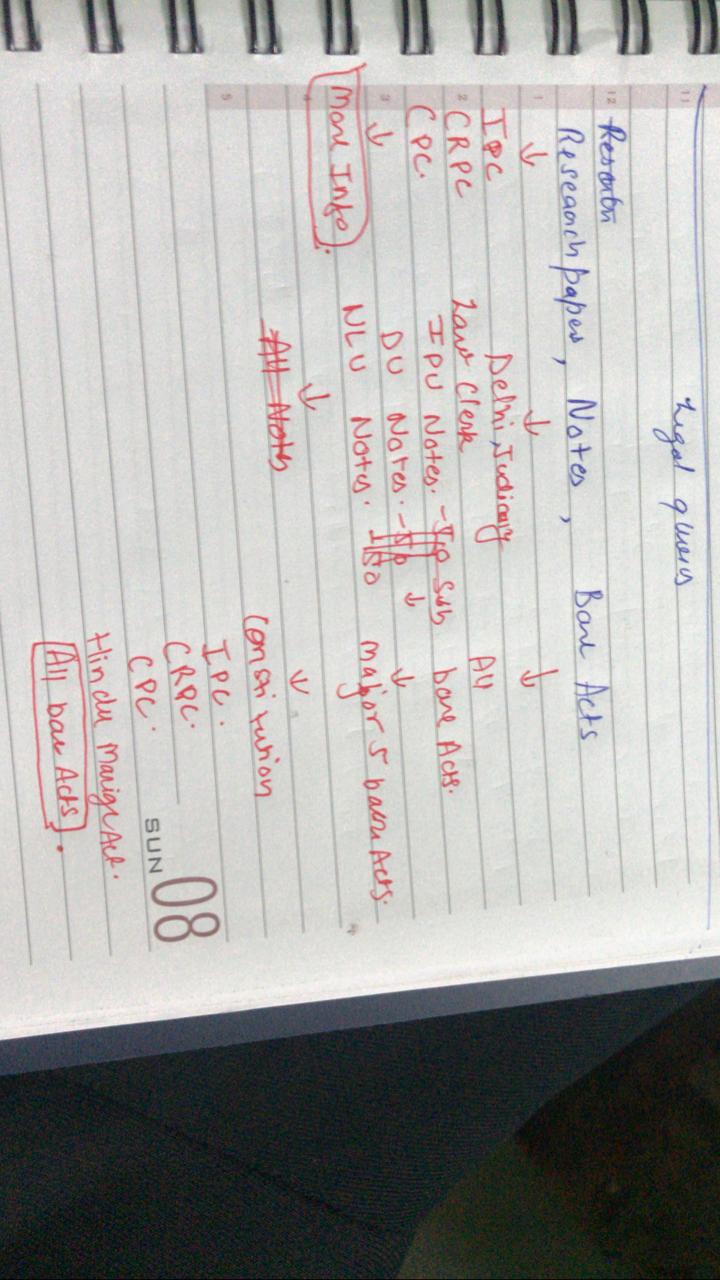 11
Legal queries
12
Research papers, Notes, Bare Acts
1
↓ ↓ ↓
IPC
CRPC
CPC.
↓
More Info.
Delhi Judiciary
Law Clerk
IPU Notes. - Top Sub
↓
DU Notes. -
NLU Notes.
↓
All Notes
All
bare Acts.
↓
major 5 bare Acts.
↓
Constitution
IPC.
CRPC.
CPC.
Hindu Marige Act.
All bare Acts.
2
3
4
5
SUN 08